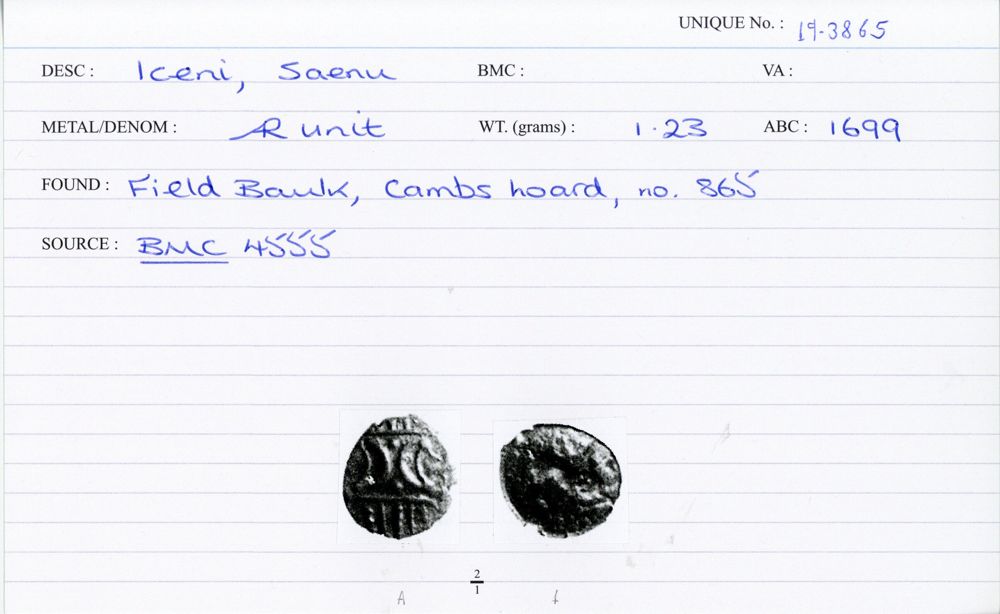 UNIQUE No. : 19-3865
DESC : Iceni, Saenu BMC : VA :
METAL/DENOM : AR unit WT. (grams) : 1.23 ABC : 1699
FOUND : Field Baulk, Cambs hoard, no. 865
SOURCE : BMC 4555
2
1
A f